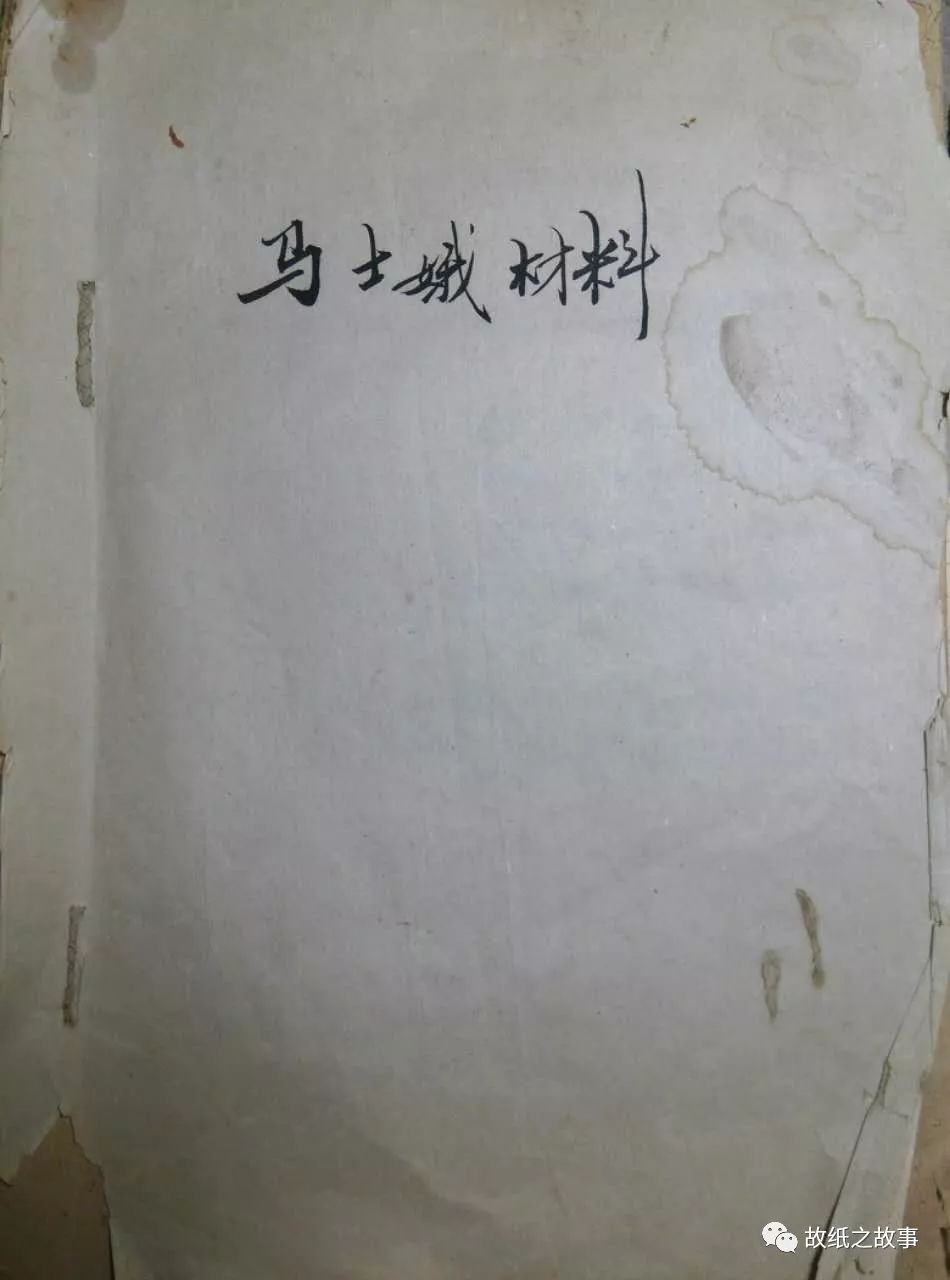 马士娥材料
故纸之故事